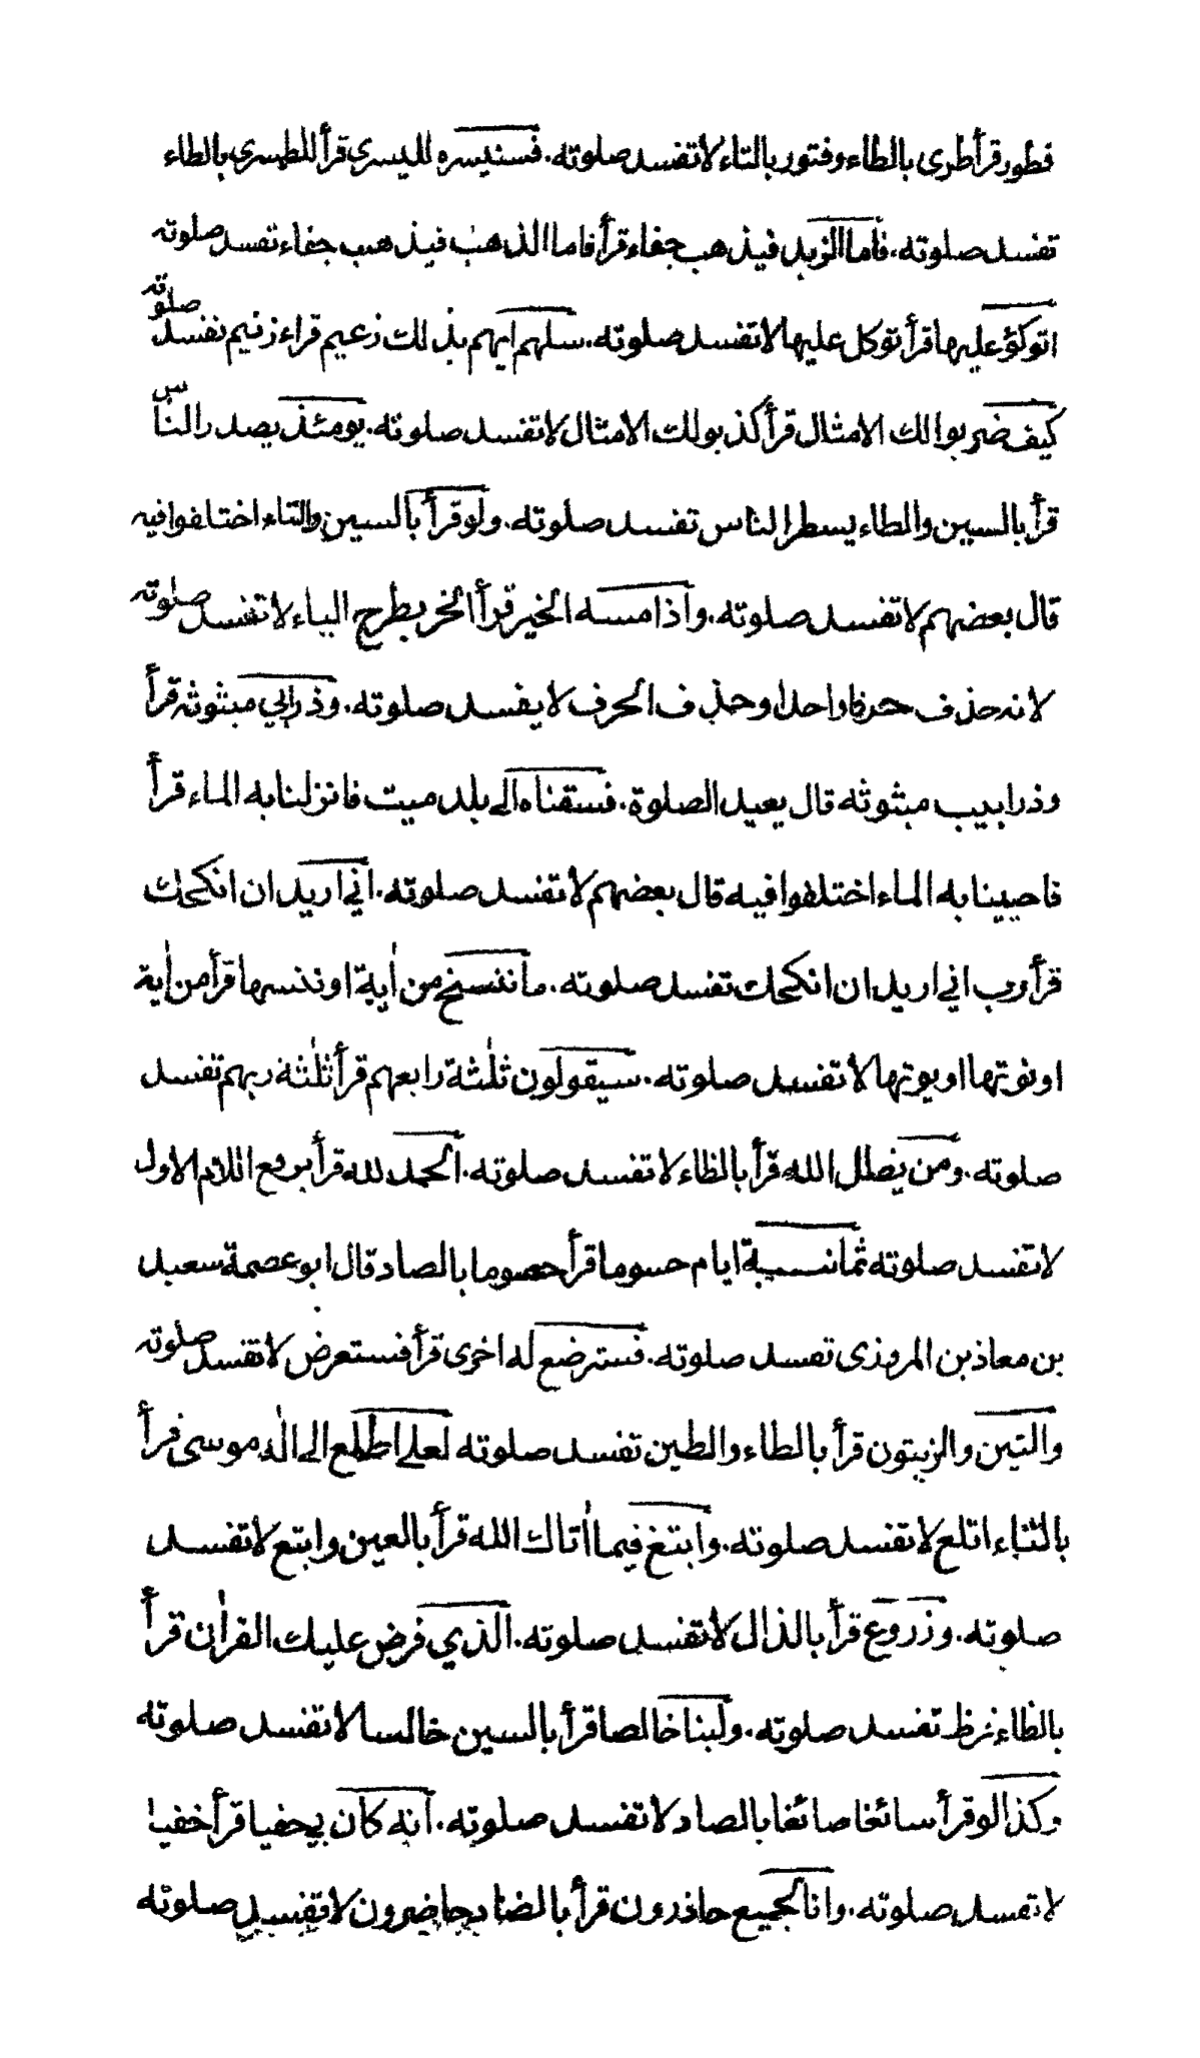 فطور قرأ طرى بالطاء وفتور بالتاء لا تفسد صلوته. فسنيسره لليسرى قرأ للطسرى بالطاء
تفسد صلوته. فاما الزبد فيذهب جفاء قرأ فاما الذهب فيذهب جفاء تفسد صلوته
اتوكؤ عليها قرأ توكل عليها لا تفسد صلوته. سلهم ايهم بذلك زعيم قراء زنيم تفسد صلوته
كيف ضربوا لك الامثال قرأ كذبو لك الامثال لا تفسد صلوته. يومئذ يصدر الناس
قرأ بالسين والطاء يسطر الناس تفسد صلوته. ولو قرأ بالسين والتاء اختلفوا فيه
قال بعضهم لا تفسد صلوته. واذا مسه الخير قرأ الخر بطرح الياء لا تفسد صلوته
لانه حذف حرفا واحدا وحذف الحرف لا يفسد صلوته. وذرابي مبثوثة قرأ
وذرابيب مبثوثه قال يعيد الصلوة. فسقناه الى بلد ميت فانزلنا به الماء قرأ
فاحيينا به الماء اختلفوا فيه قال بعضهم لا تفسد صلوته. اني اريد ان انكحك
قرأ ورب اني اريد ان انكحك تفسد صلوته. ما ننسخ من اٰية او ننسها قرأ من اٰية
او نوتها او يوتها لا تفسد صلوته. سيقولون ثلٰثة رابعهم قرأ ثلٰثة ربهم تفسد
صلوته. ومن يضلل الله قرأ بالظاء لا تفسد صلوته. الحمد لله قرأ برفع اللام الاول
لا تفسد صلوته ثمانية ايام حسوما قرأ حصوما بالصاد قال ابو عصمة سعيد
بن معاذ بن المروزى تفسد صلوته. فسترضع له اخرى قرأ فستعرض لا تفسد صلوته
والتين والزيتون قرأ بالطاء والطين تفسد صلوته لعلى اطلع الى الٰه موسى قرأ
بالتاء اتلع لا تفسد صلوته. وابتغ فيما اٰتاك الله قرأ بالعين وابتع لا تفسد
صلوته. وزروع قرأ بالذال لا تفسد صلوته. الذي فرض عليك القرآن قرأ
بالظاء فرظ تفسد صلوته. ولبنا خالصا قرأ بالسين خالسا لا تفسد صلوته
وكذا لو قرأ سائغا صائغا بالصاد لا تفسد صلوته. انه كان بي حفيا قرأ خفيا
لا تفسد صلوته. وانا لجميع حاذرون قرأ بالضاد حاضرون لا تفسد صلوته